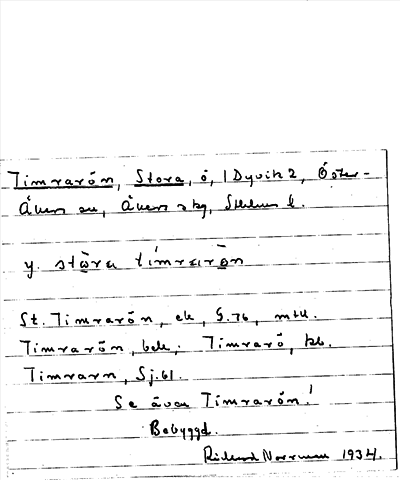 Timrarön, Stora, ö, i Dyvik 2, Öster-
Åkers sn, Åkers skg, Sthlms l.
y. stòra tímrarön
St. Timrarön, ek, G.76, mtl.
Timrarön, bek; Timrarö, kb.
Timrarn, Sj.61.
Se även Timrarön!
Bebyggd.
Rickard Norrman 1934.